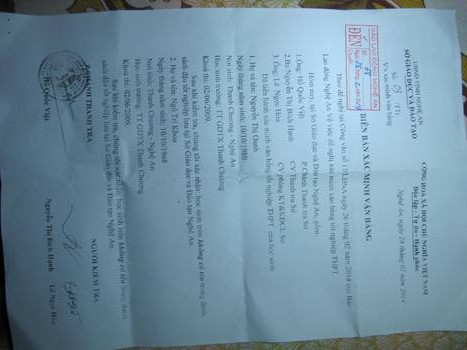 UBND TỈNH NGHỆ AN
SỞ GIÁO DỤC VÀ ĐÀO TẠO
Số /TTr
V/v xác minh văn bằng
CỘNG HOÀ XÃ HỘI CHỦ NGHĨA VIỆT NAM
Độc lập - Tự do - Hạnh phúc
Nghệ An, ngày 28 tháng 02 năm 2014
ĐẾN
BIÊN BẢN XÁC MINH VĂN BẰNG
Theo đề nghị tại Công văn số ngày 26 tháng 02 năm 2014 của Báo
Lao động Nghệ An Về việc đề nghị xác minh văn bằng tốt nghiệp THPT.
Hôm nay, tại Sở Giáo dục và Đào tạo Nghệ An, gồm:
1. Ông: Hồ Quốc Việt P. Chánh Thanh tra Sở
2. Bà: Nguyễn Thị Bích Hạnh CV Thanh tra Sở
3. Ông: Lê Ngọc Hòa CV phòng KT&KĐCL Sở
Đã tiến hành xác minh văn bằng tốt nghiệp THPT của học sinh:
1. Họ và tên: Nguyễn Thị Oanh
Ngày tháng năm sinh: 10/10/1980
Nơi sinh: Thanh Chương - Nghệ An
Học sinh trường: TT GDTX Thanh Chương
Khoá thi: 02/06/2009
Sau khi kiểm tra, chúng tôi xác nhận học sinh trên không có tên trong danh
sách đã tốt nghiệp lưu tại Sở Giáo dục và Đào tạo Nghệ An.
2. Họ và tên: Ngũ Trí Khoa
Ngày tháng năm sinh: 10/10/1968
Nơi sinh: Thanh Chương - Nghệ An
Học sinh trường: TT GDTX Thanh Chương
Khoá thi: 02/06/2009
Sau khi kiểm tra, chúng tôi xác nhận học sinh trên không có tên trong danh
sách đã tốt nghiệp lưu tại Sở Giáo dục và Đào tạo Nghệ An.
P. CHÁNH THANH TRA
NGƯỜI KIỂM TRA
Hồ Quốc Việt
Nguyễn Thị Bích Hạnh Lê Ngọc Hòa